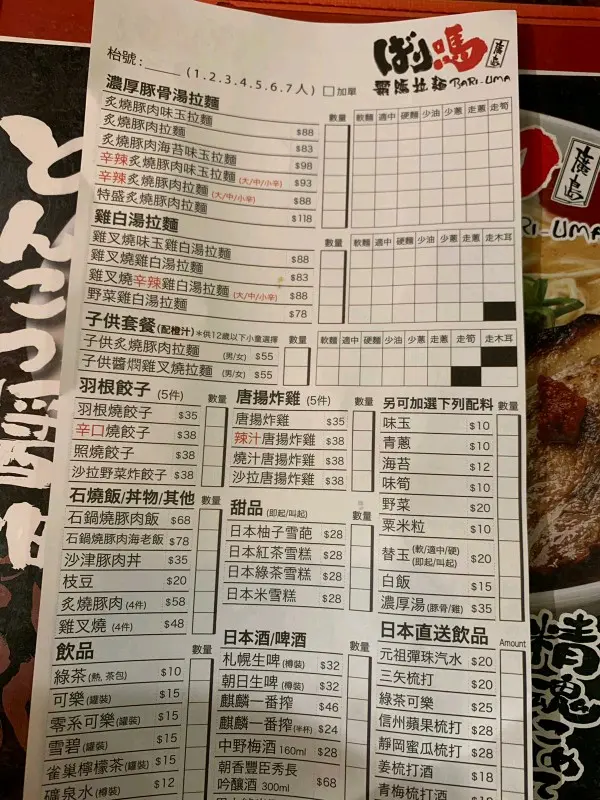 枱號：____ (1.2.3.4.5.6.7人) □加單
ばり嗎
廣島
霸嗎拉麵 BARI-UMA
濃厚豚骨湯拉麵 數量 軟麵 適中 硬麵 少油 少蔥 走蔥 走筍
炙燒豚肉味玉拉麵 $88
炙燒豚肉拉麵 $83
炙燒豚肉海苔味玉拉麵 $98
辛辣炙燒豚肉味玉拉麵 (大/中/小辛) $93
辛辣炙燒豚肉拉麵 (大/中/小辛) $88
特盛炙燒豚肉拉麵 $118
雞白湯拉麵 數量 軟麵 適中 硬麵 少油 少蔥 走蔥 走木耳
雞叉燒味玉雞白湯拉麵 $88
雞叉燒雞白湯拉麵 $83
雞叉燒辛辣雞白湯拉麵 (大/中/小辛) $88
野菜雞白湯拉麵 $78
子供套餐 (配橙汁) *供12歲以下小童選擇 數量 軟麵 適中 硬麵 少油 少蔥 走蔥 走筍 走木耳
子供炙燒豚肉拉麵 (男/女) $55
子供醬燜雞叉燒拉麵 (男/女) $55
羽根餃子 (5件) 數量
羽根燒餃子 $35
辛口燒餃子 $38
照燒餃子 $38
沙拉野菜炸餃子 $38
唐揚炸雞 (5件) 數量
唐揚炸雞 $35
辣汁唐揚炸雞 $38
燒汁唐揚炸雞 $38
沙拉唐揚炸雞 $38
另可加選下列配料 數量
味玉 $10
青蔥 $10
海苔 $12
味筍 $10
野菜 $20
粟米粒 $10
替玉 (軟/適中/硬) (即起/叫起) $20
白飯 $15
濃厚湯 (豚骨/雞) $35
石燒飯/丼物/其他 數量
石鍋燒豚肉飯 $68
石鍋燒豚肉海老飯 $78
沙津豚肉丼 $35
枝豆 $20
炙燒豚肉 (4件) $58
雞叉燒 (4件) $48
甜品 (即起/叫起) 數量
日本柚子雪葩 $28
日本紅茶雪糕 $28
日本綠茶雪糕 $28
日本米雪糕 $28
飲品 數量
綠茶 (熱, 茶包) $10
可樂 (罐裝) $15
零系可樂 (罐裝) $15
雪碧 (罐裝) $15
雀巢檸檬茶 (罐裝) $15
礦泉水 (樽裝) $12
日本酒/啤酒 數量
札幌生啤 (樽裝) $32
朝日生啤 (樽裝) $32
麒麟一番搾 $46
麒麟一番搾 (半杯) $24
中野梅酒 160ml $28
朝香豐臣秀長
吟釀酒 300ml $68
日本直送飲品 Amount
元祖彈珠汽水 $20
三矢梳打 $20
綠茶可樂 $25
信州蘋果梳打 $28
靜岡蜜瓜梳打 $28
姜梳打酒 $18
青梅梳打酒 $15
とんこつ醤油
廣島
RI-UMA
精魂こめて